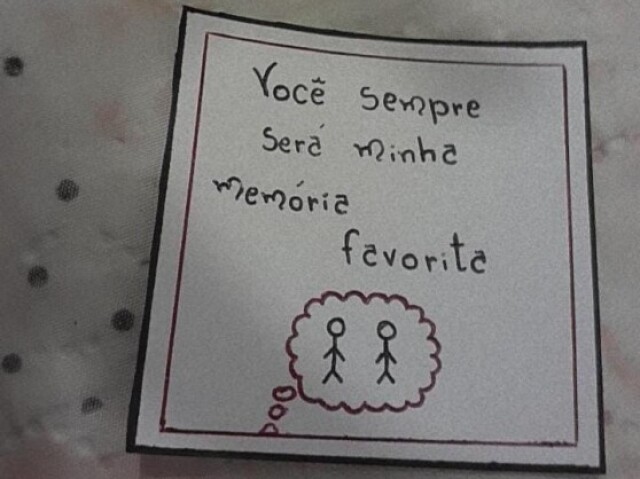 Você sempre
será minha
memória
favorita